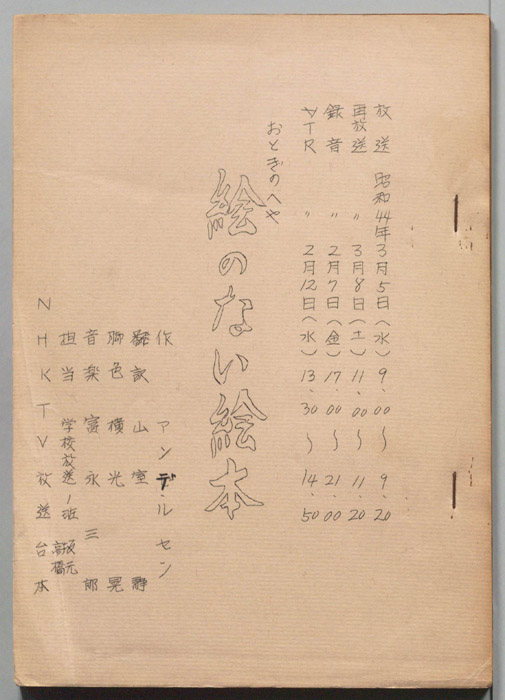 放送 昭和44年3月5日(水) 9.00〜9.20
再放送 〃 3月8日(土) 11.00〜11.20
録音 〃 2月7日(金) 17.00〜21.00
VTR 〃 2月12日(水) 13.30〜14.50
おとぎのへや
絵のない絵本
作 アンデルセン
翻訳 山室 静
脚色 横光 晃
音楽 富永三郎
担当 学校放送1班 坂元 高橋
NHKTV放送台本